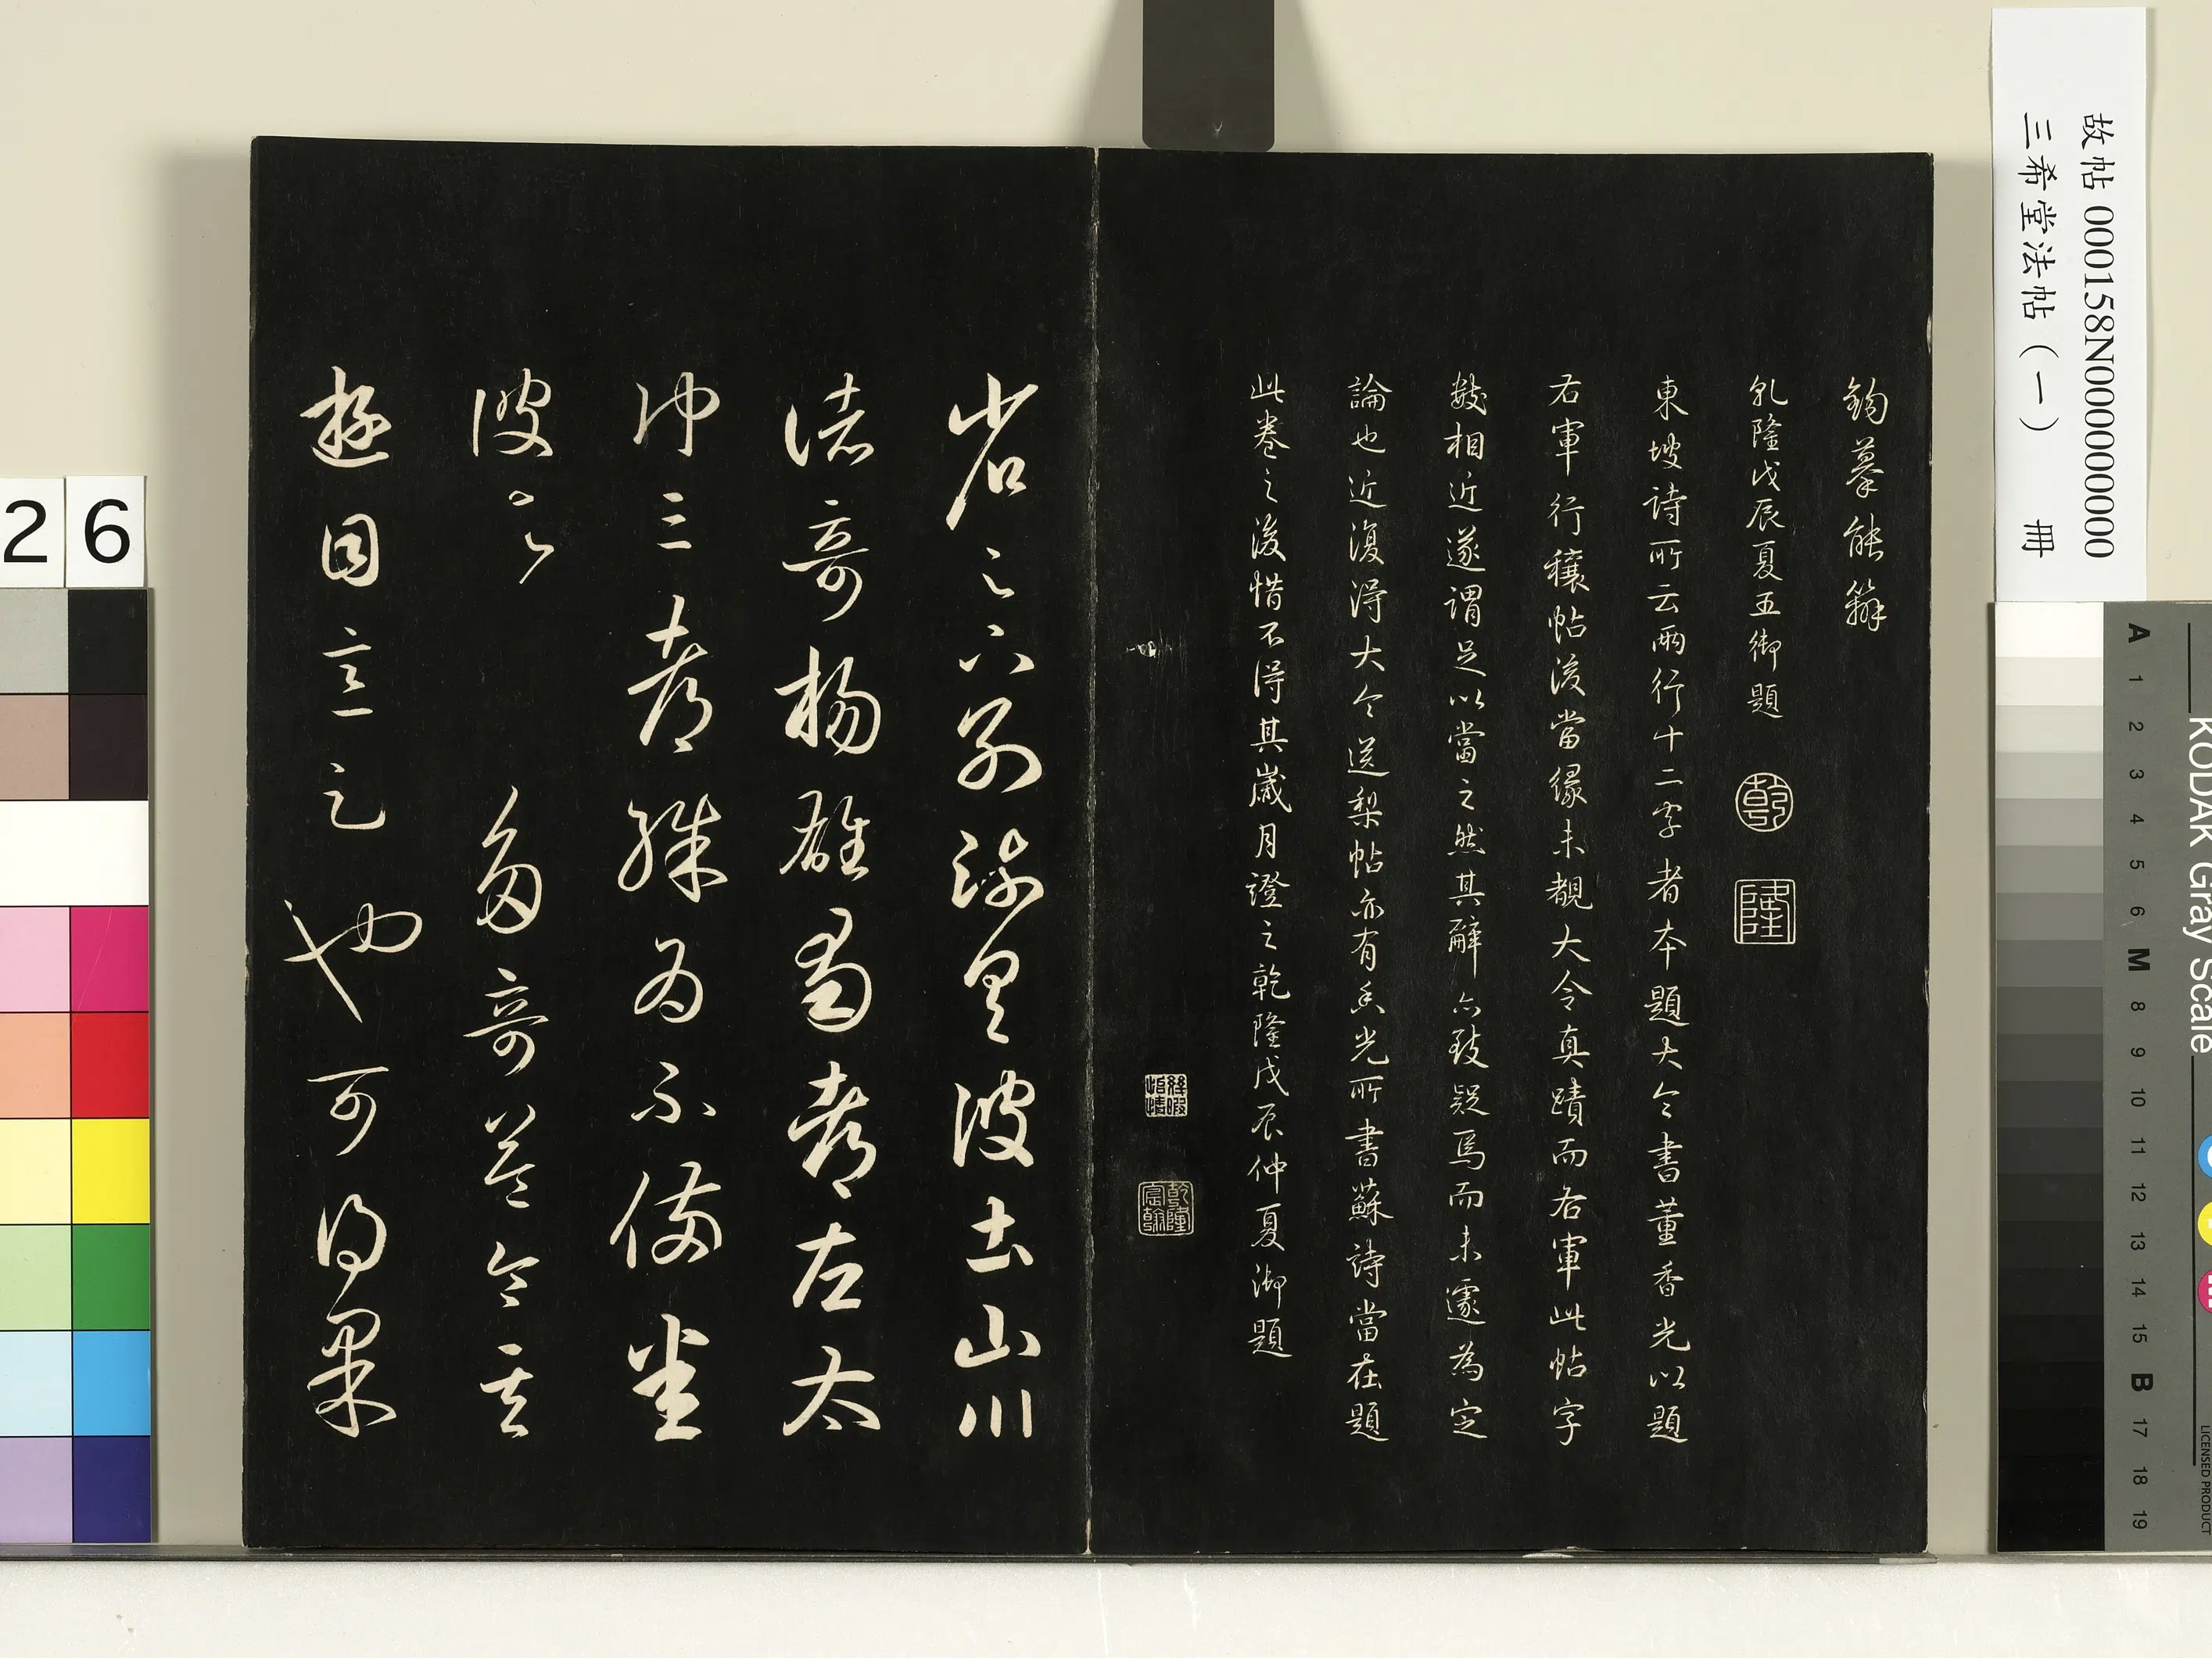 故帖 000158N000000000
三希堂法帖（一） 冊
鉤摹能辯
乹隆戊辰夏五御題
乾
隆
東坡詩所云兩行十二字者本題大令書董香光以題
右軍行穰帖後當緣未覩大令真蹟而右軍此帖字
數相近遂謂足以當之然其辭亦致疑焉而未遽為定
論也近復得大令送梨帖亦有香光所書蘇詩當在題
此卷之後惜不得其歲月證之乾隆戊辰仲夏御題
乾隆宸翰
省足下別疏具彼土山川
諸奇楊雄蜀都左太
沖三都殊為不備悉
彼故為多奇益令其
遊目意足也可得果
26
KODAK Gray Scale
LICENSED PRODUCT
A 1 2 3 4 5 6 M 8 9 10 11 12 13 14 15 B 17 18 19